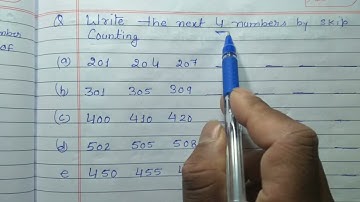 mber
of
Q Write the next 4 numbers by skip
Counting
(a) 201 204 207
(b) 301 305 309
(c) 400 410 420
(d) 502 505 508
e 450 455